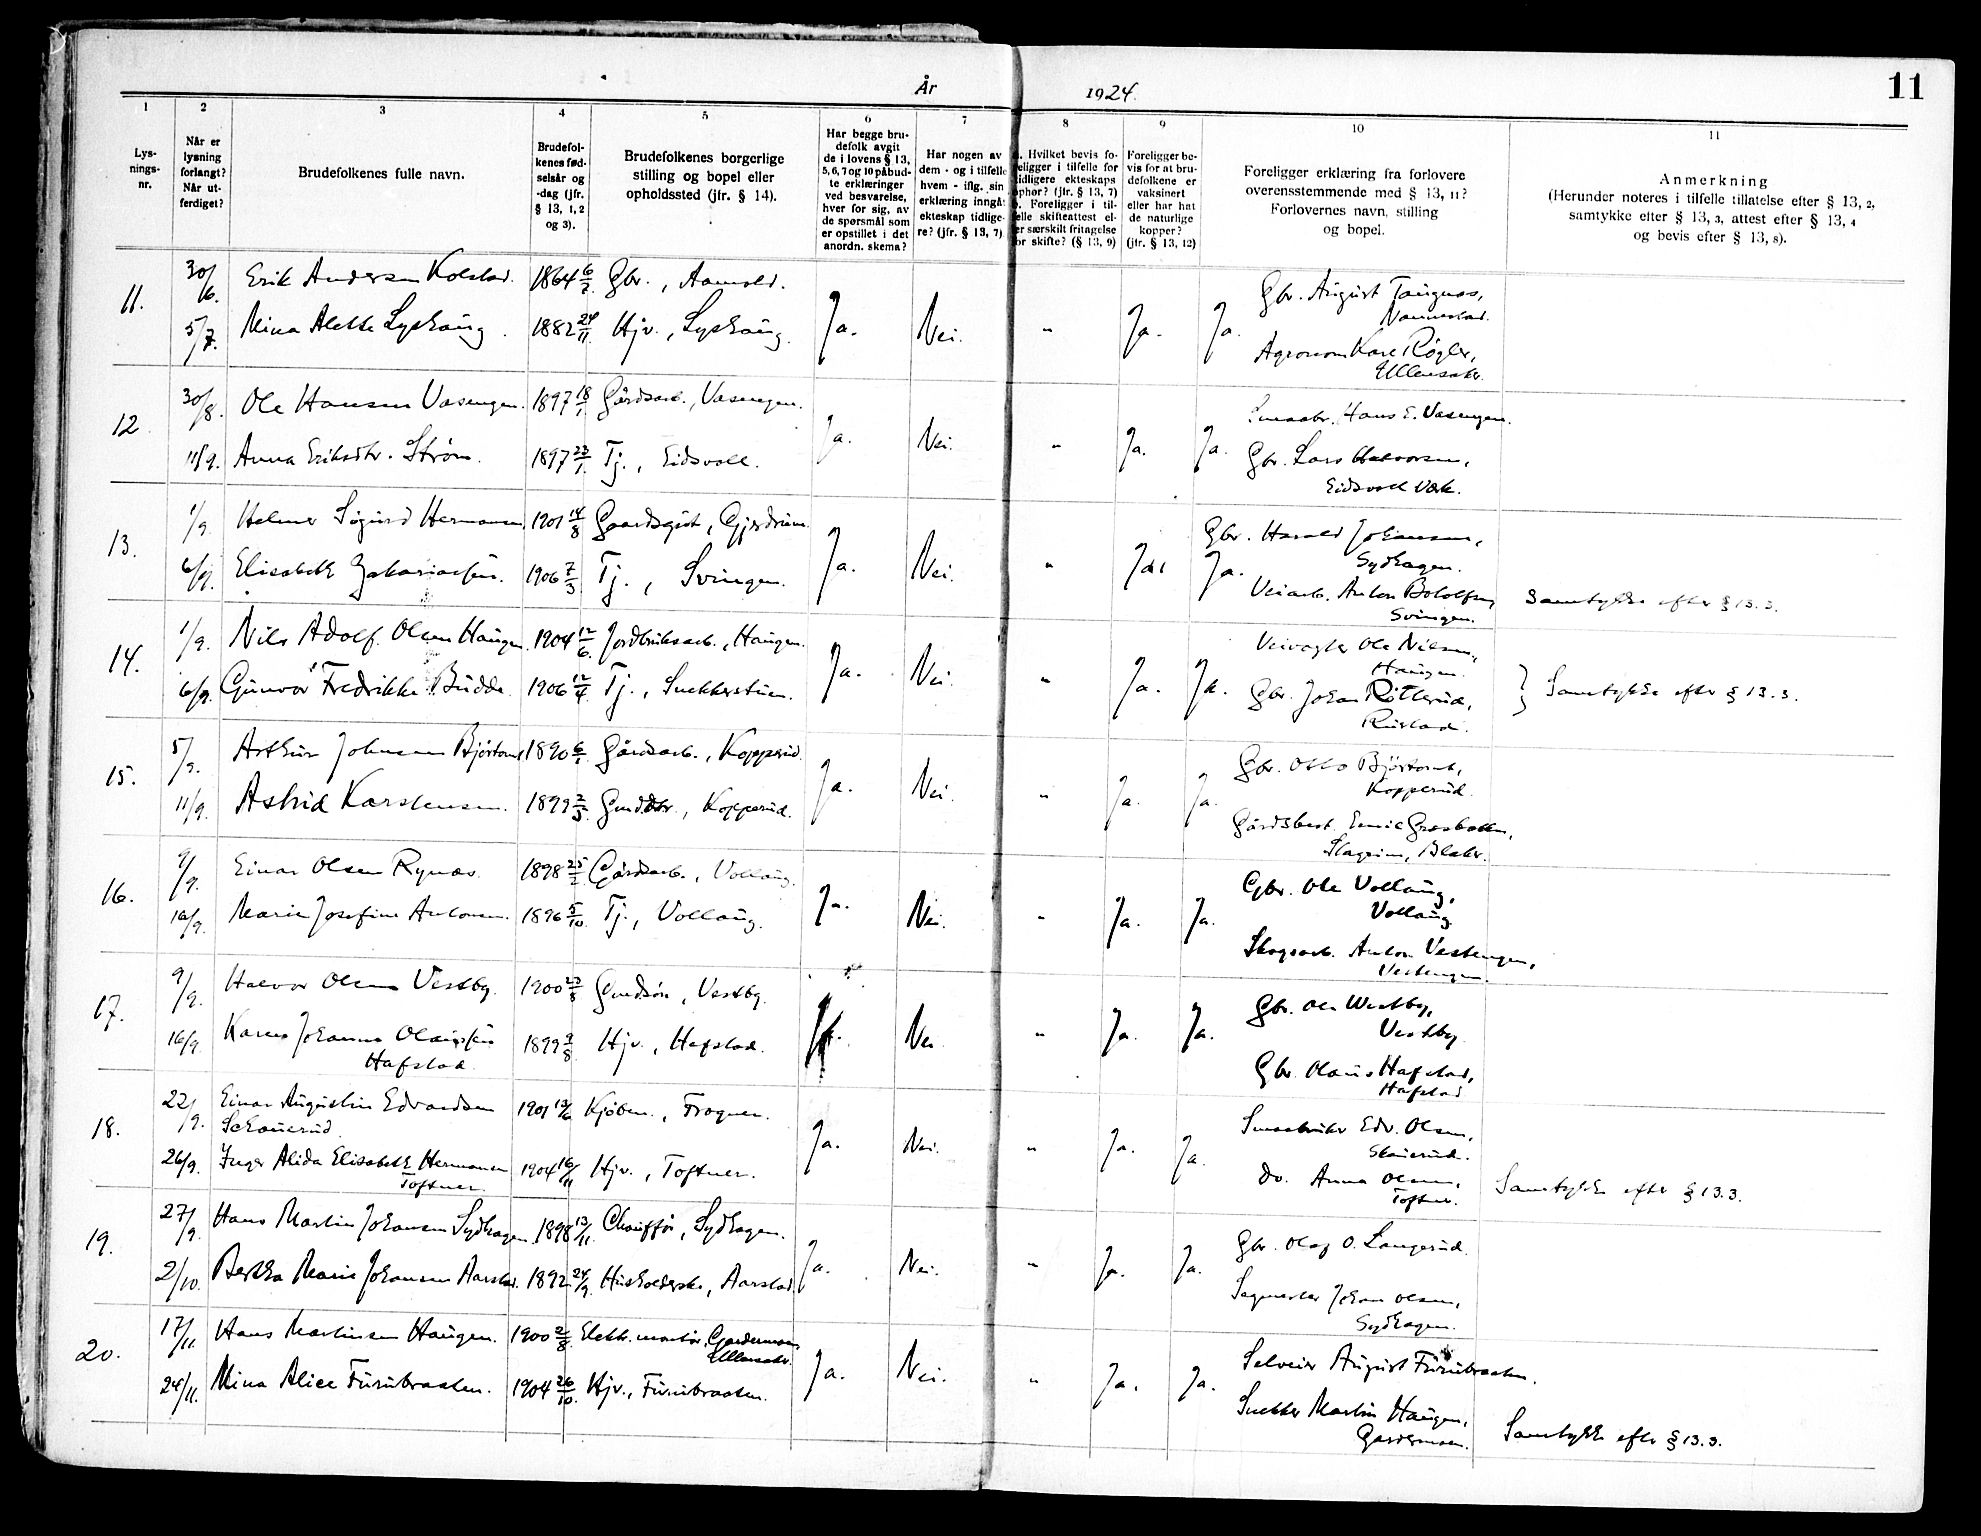 År 1924.
11
1
2
3
4
5
6
7
8
9
10
11
Lys-
nings-
nr.
Når er
lysning
forlangt?
Når ut-
ferdiget?
Brudefolkenes fulle navn.
Brudefol-
kenes fød-
selsår og
-dag (jfr.
§ 13, 1, 2
og 3).
Brudefolkenes borgerlige
stilling og bopel eller
opholdssted (jfr. § 14).
Har begge bru-
defolk avgit
de i lovens § 13,
5, 6, 7 og 10 påbud-
te erklæringer
ved besvarelse,
hver for sig, av
de spørsmål som
er opstillet i det
anordn. skema?
Har nogen av
dem - og i tilfelle
hvem - iflg. sin
erklæring inngåt
ekteskap tidlige-
re? (jfr. § 13, 7)
a. Hvilket bevis fo-
religger i tilfelle for
tidligere ekteskaps
ophør? (jfr. § 13, 7)
b. Foreligger i til-
felle skifteattest el-
ler særskilt fritagelse
for skifte? (§ 13, 9)
Foreligger be-
vis for at bru-
defolkene er
vaksinert
eller har hat
de naturlige
kopper?
(jfr. § 13, 12)
Foreligger erklæring fra forlovere
overensstemmende med § 13, 11?
Forlovernes navn, stilling
og bopel.
Anmerkning
(Herunder noteres i tilfelle tillatelse efter § 13, 2,
samtykke efter § 13, 3, attest efter § 13, 4
og bevis efter § 13, 8).
11.
30/6. Erik Andersen Kolstad. 1864 6/2. Gbr.,
5/7. Mina Alette Lyshaug. 1882 24/11. Hjv., Lyshaug.
Ja. Nei. " Ja. Ja.
Gbr. August Taugnæs,
Nannestad.
Agronom Kare Røgler,
Ullensaker.
12
30/8. Ole Hansen Vasengen. 1897 18/1 Gårdsarb., Vasengen.
11/9. Anna Eriksdtr. Strøm. 1897 23/1. Tj., Eidsvoll.
Ja. Nei. " Ja. Ja.
Smaabr. Hans E. Vasengen.
Gbr. Lars Halvorsen,
Eidsvoll Værk.
13.
1/9. Helmer Sigurd Hermansen 1901 14/8 Gaardsgut, Gjerdrum.
6/9. Elisabeth Zakariassen. 1906 7/3 Tj., Svingen.
Ja. Nei. " Ja. Ja.
Gbr. Harald Johansen,
Sydhagen.
Veiarb. Anton Bololfsen,
Svingen.
Samtykke efter § 13.3.
14.
1/9. Nils Adolf Olsen Haugen 1904 12/6. Jordbruksarb., Haugen.
6/9. Gunvor Fredrikke Budde. 1906 12/4 Tj., Snekkerstuen.
Ja. Nei. " Ja. Ja.
Veivogter Ole Nilsen,
Haugen.
Gbr. Johan Rotterud,
Rustad.
} Samtykke efter § 13.3.
15.
5/9. Arthur Johnsen Bjørtomt 1890 6/1 Gårdsarb., Kopperud.
11/9. Astrid Karstensen. 1899 2/3 Gmddtr., Kopperud.
Ja. Nei. " Ja. Ja.
Gbr. Otto Bjørtomt,
Kopperud.
Gårdsbest. Emil Græsbakken,
Blaker.
16.
9/9. Einar Olsen Rynæs. 1898 25/2 Gårdsarb., Vollaug.
16/9. Marie Josefine Antonsen. 1896 5/10. Tj., Vollaug.
Ja. Nei. " Ja. Ja.
Gbr. Ole Vollaug,
Vollaug
Skogsarb. Anton Vestengen,
Vestengen.
17.
9/9. Halvor Olsen Vestby. 1900 23/8 Gmdsøn, Vestby.
16/9. Karen Johanne Olaussen
Hafstad. 1899 9/8 Hjv., Hafstad.
Ja. Nei " Ja. Ja.
Gbr. Ole Westby,
Vestby
Gbr. Olaus Hafstad,
Hafstad
18.
22/9. Einar Augustin Edvardsen
Schauerud. 1901 12/6 Kjøbm., Frogner.
26/9. Inger Alida Elisabeth Hermansen
Toftner. 1904 16/11 Hjv., Toftner.
Ja. Nei. " Ja. Ja.
Smaabruker Edv. Olsen,
Skauerud.
Do. Anna Olsen,
Toftner.
Samtykke efter § 13.3.
19.
27/9. Hans Martin Johansen Sydhagen. 1898 13/11. Chauffør, Sydhagen.
2/10. Bertha Marie Johansen Aarstad. 1892 24/9. Husholderske, Aarstad
Ja. Nei. " Ja. Ja.
Gbr. Olaf O. Langerud.
Sagmester Johan Olsen,
Sydhagen.
20.
17/11. Hans Martinsen Haugen. 1900 2/8. Elektr. montør, Gardermoen
Ullensaker.
24/11. Mina Alice Furubraaten. 1904 26/10. Hjv., Furubraaten.
Ja. Nei. " Ja. Ja.
Selveier August Furubraaten.
Snekker Martin Haugen,
Gardermoen.
Samtykke efter § 13.3.